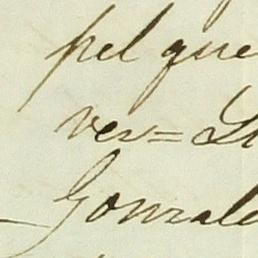 pel que
ver=
Gonzale